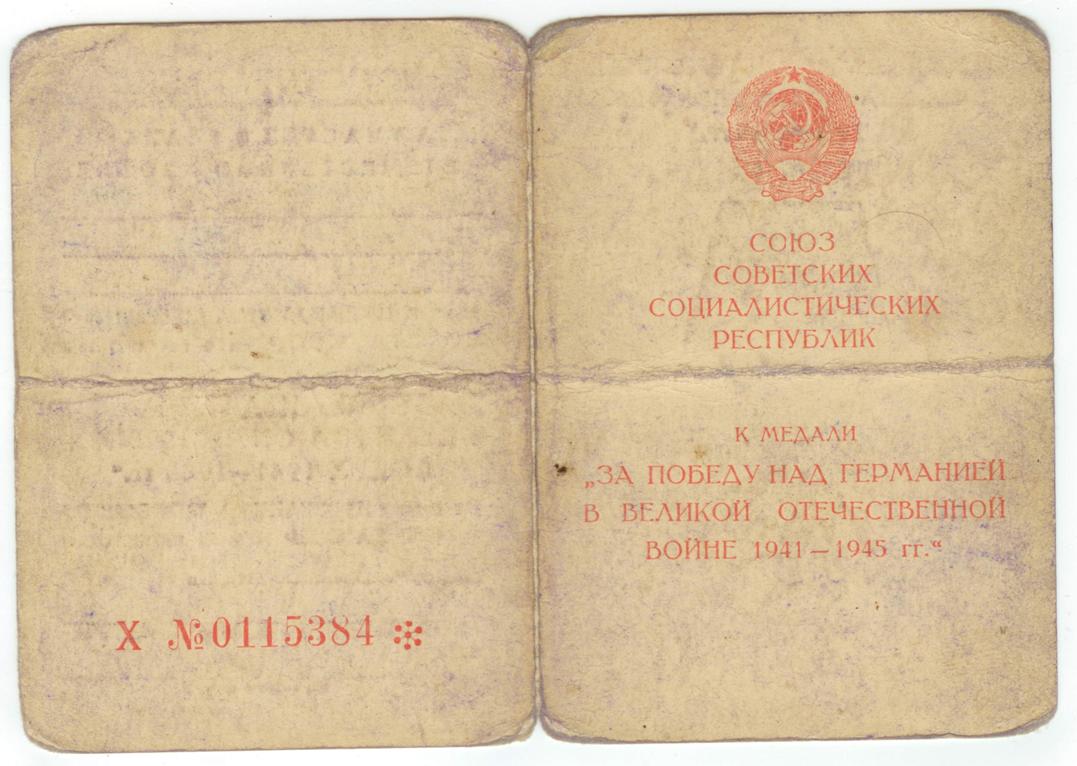 Х №0115384
СОЮЗ
СОВЕТСКИХ
СОЦИАЛИСТИЧЕСКИХ
РЕСПУБЛИК
К МЕДАЛИ
„ЗА ПОБЕДУ НАД ГЕРМАНИЕЙ
В ВЕЛИКОЙ ОТЕЧЕСТВЕННОЙ
ВОЙНЕ 1941—1945 гг.“